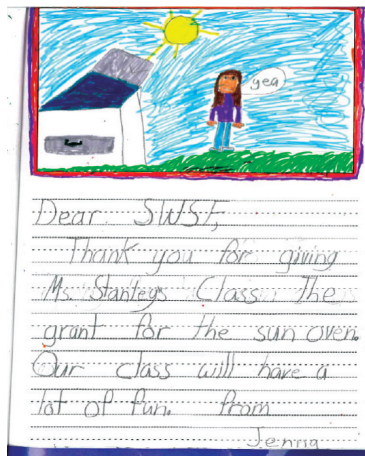 yea
Dear SWSF,
Thank you for giving
Ms. Stanleys Class The
grant for the sun oven.
Our class will have a
lot of fun. from
Jenna